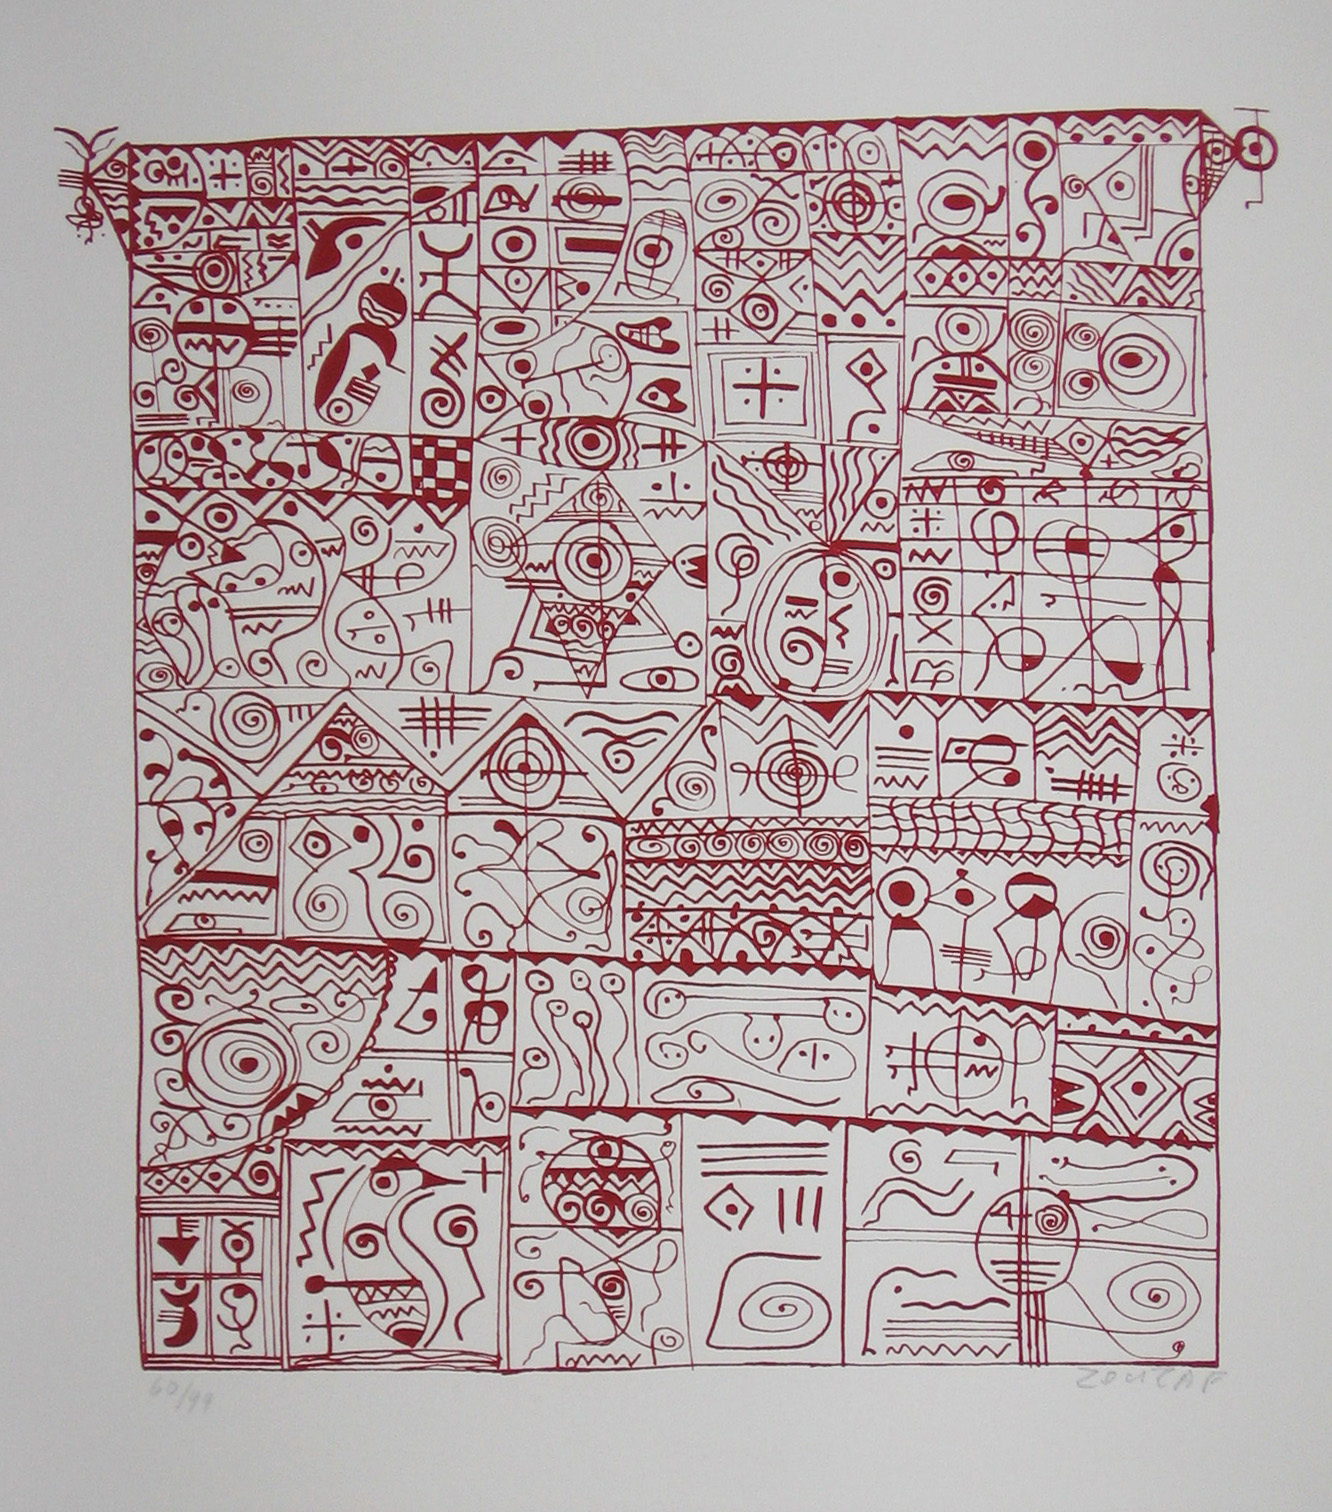 60/99
ZOUZAF